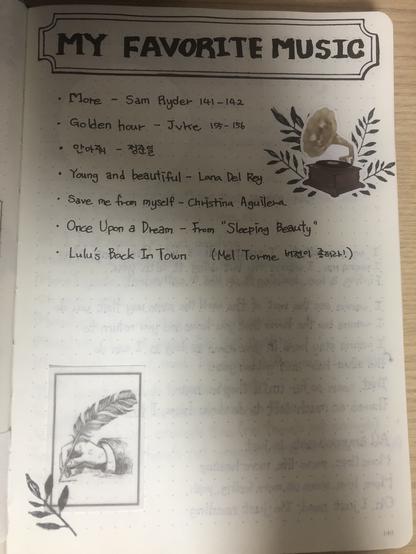 MY FAVORITE MUSIC
· More - Sam Ryder 141-142
· Golden hour - Jvke 155-156
· 안아줘 - 정준일
· Young and beautiful - Lana Del Rey
· Save me from myself - Christina Aguilera
· Once Upon a Dream - From "Sleeping Beauty"
· Lulu's Back In Town (Mel Torme 버전이 좋아요!)